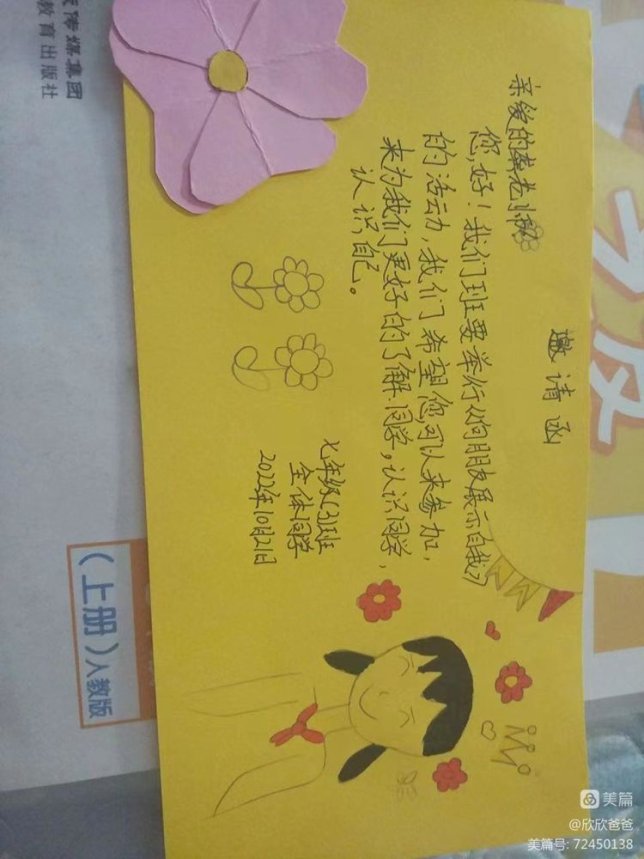 邀请函
亲爱的
您好！我们班要举行《向朋友展示自我》
的活动，我们希望您可以来参加，
来为我们更好的了解同学，认识同学，
认识自己。
七年级(3)班
全体同学
2022年10月21日
传媒集团
教育出版社
（上册）人教版
美篇
@欣欣爸爸
美篇号: 72450138